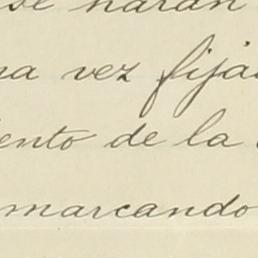 se harán
na vez fija
ento de la
marcando